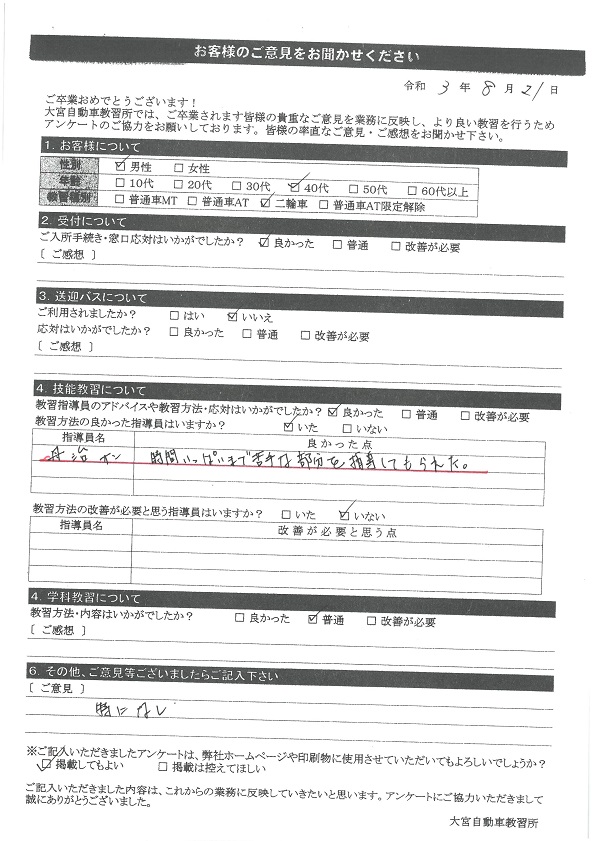 お客様のご意見をお聞かせください
令和 3 年 8 月 21 日
ご卒業おめでとうございます！
大宮自動車教習所では、ご卒業されます皆様の貴重なご意見を業務に反映し、より良い教習を行うため
アンケートのご協力をお願いしております。皆様の率直なご意見・ご感想をお聞かせ下さい。
1. お客様について
性別 ☑男性 □女性
年齢 □10代 □20代 □30代 ☑40代 □50代 □60代以上
教習種別 □普通車MT □普通車AT ☑二輪車 □普通車AT限定解除
2. 受付について
ご入所手続き・窓口応対はいかがでしたか？ ☑良かった □普通 □改善が必要
〔 ご感想 〕
3. 送迎バスについて
ご利用されましたか？ □はい ☑いいえ
応対はいかがでしたか？ □良かった □普通 □改善が必要
〔 ご感想 〕
4. 技能教習について
教習指導員のアドバイスや教習方法・応対はいかがでしたか？ ☑良かった □普通 □改善が必要
教習方法の良かった指導員はいますか？ ☑いた □いない
指導員名 良かった点
丹治 時間いっぱいまで苦手な部分を指導してもられた。
教習方法の改善が必要と思う指導員はいますか？ □いた ☑いない
指導員名 改善が必要と思う点
4. 学科教習について
教習方法・内容はいかがでしたか？ □良かった ☑普通 □改善が必要
〔 ご感想 〕
6. その他、ご意見等ございましたらご記入下さい
〔 ご意見 〕
特になし
※ご記入いただきましたアンケートは、弊社ホームページや印刷物に使用させていただいてもよろしいでしょうか？
☑掲載してもよい □掲載は控えてほしい
ご記入いただきました内容は、これからの業務に反映していきたいと思います。アンケートにご協力いただきまして
誠にありがとうございました。
大宮自動車教習所